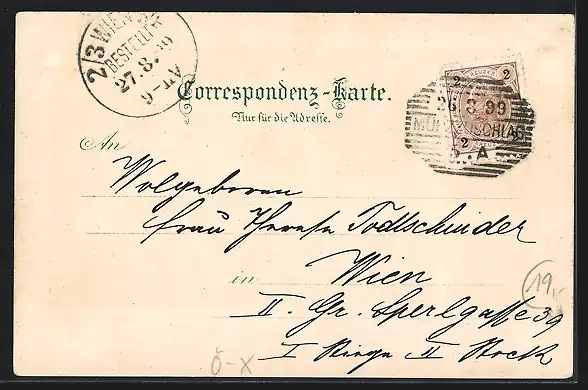 2/3 WIEN
BESTELLT
27.8.99
9-
Correspondenz-Karte.
Nur für die Adresse.
2 KREUZER 2
2
26.8.99
MÜRZZUSCHLAG
A
An
Wolgeboren
Frau Therese Todtschinder
in Wien
II. Gr. Sperlgasse 39
I Stiege II Stock
19,-
Ö-X